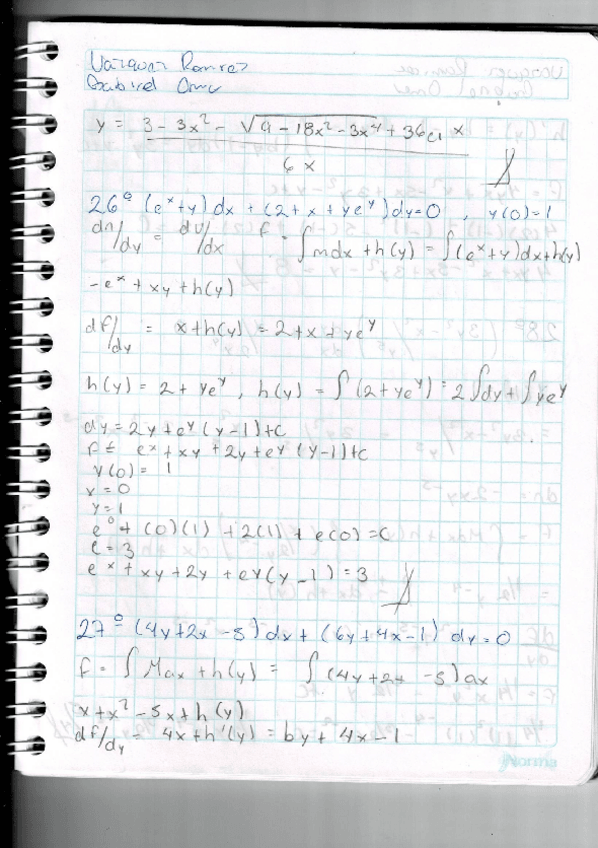 Vazquez Ramirez
Gabriel Omar
y = 3 - 3x² - √9 - 18x² - 3x⁴ + 36c₁ x
6x
26º (eˣ+y) dx + (2+x+yeʸ) dy=0 , y(0)=1
dn/dy = dv/dx f = ∫mdx + h(y) = ∫(eˣ+y)dx+h(y)
- eˣ + xy + h(y)
df/dy = x+h(y) = 2+x+yeʸ
h(y) = 2+ yeʸ , h(y) = ∫(2+yeʸ) = 2∫dy + ∫yeʸ
dy = 2y + eʸ(y-1)+C
f = eˣ + xy + 2y + eʸ(y-1)+C
y(0) = 1
x=0
y=1
e⁰ + (0)(1) + 2(1) + e(0) = C
C = 3
eˣ + xy + 2y + eʸ(y-1) = 3
27º (4y+2x-5) dx + (6y+4x-1) dy=0
f = ∫Max + h(y) = ∫(4y+2x-5)dx
x+x² - 5x+h(y)
df/dy = 4x+h'(y) = 6y + 4x-1
Norma